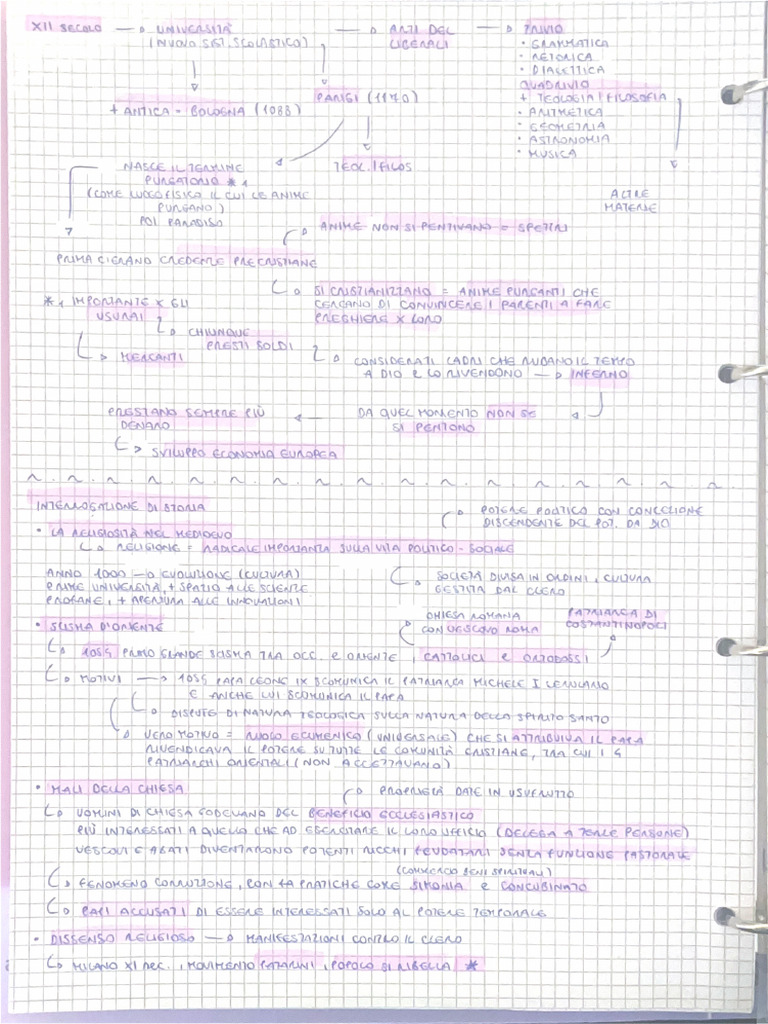 XII SECOLO → UNIVERSITÀ → ARTI DEL → TRIVIO
(NUOVO SIST. SCOLASTICO) LIBERALI
• GRAMMATICA
• RETORICA
• DIALETTICA
QUADRIVIO
PARIGI (1170) + TEOLOGIA / FILOSOFIA
+ ANTICA - BOLOGNA (1088) • ARITMETICA
• GEOMETRIA
• ASTRONOMIA
• MUSICA
NASCE IL TERMINE TEOL. / FILOS
PURGATORIO *1
(COME LUOGO FISICO IL CUI LE ANIME ALTRE
PURGANO) MATERIE
POI PARADISO
ANIME NON SI PENTIVANO = SPETTRI
PRIMA C'ERANO CREDENZE PRECRISTIANE
SI CRISTIANIZZANO = ANIME PURGANTI CHE
CERCANO DI CONVINCERE I PARENTI A FARE
PREGHIERE X LORO
*1 IMPORTANTE X GLI
USURAI
CHIUNQUE
PRESTI SOLDI
MERCANTI
CONSIDERATI LADRI CHE RUBANO IL TEMPO
A DIO E LO RIVENDONO → INFERNO
DA QUEL MOMENTO NON SE
SI PENTONO
PRESTANO SEMPRE PIÙ
DENARO
SVILUPPO ECONOMIA EUROPEA
INTERROGAZIONE DI STORIA
POTERE POLITICO CON CONCEZIONE
DISCENDENTE DEL POT. DA DIO
• LA RELIGIOSITÀ NEL MEDIOEVO
RELIGIONE = RADICALE IMPORTANZA SULLA VITA POLITICO-SOCIALE
ANNO 1000 → EVOLUZIONE (CULTURA)
PRIME UNIVERSITÀ, + SPAZIO ALLE SCIENZE
PROFANE, + APERTURA ALLE INNOVAZIONI
SOCIETÀ DIVISA IN ORDINI, CULTURA
GESTITA DAL CLERO
CHIESA ROMANA PATRIARCA DI
CON VESCOVO ROMA COSTANTINOPOLI
• SCISMA D'ORIENTE
1054 PRIMO GRANDE SCISMA TRA OCC. E ORIENTE, CATTOLICI E ORTODOSSI
MOTIVI → 1054 PAPA LEONE IX SCOMUNICA IL PATRIARCA MICHELE I CERULARIO
E ANCHE LUI SCOMUNICA IL PAPA
DISPUTE DI NATURA TEOLOGICA SULLA NATURA DELLA SPIRITO SANTO
VERO MOTIVO = RUOLO ECUMENICO (UNIVERSALE) CHE SI ATTRIBUIVA IL PAPA
RIVENDICAVA IL POTERE SU TUTTE LE COMUNITÀ CRISTIANE, TRA CUI I 4
PATRIARCHI ORIENTALI (NON ACCETTAVANO)
• MALI DELLA CHIESA
PROPRIETÀ DATE IN USUFRUTTO
UOMINI DI CHIESA GODEVANO DEL BENEFICIO ECCLESIASTICO
PIÙ INTERESSATI A QUELLO CHE AD ESERCITARE IL LORO UFFICIO (DELEGA A TERZE PERSONE)
VESCOVI E ABATI DIVENTARONO POTENTI RICCHI FEUDATARI SENZA FUNZIONE PASTORALE
(COMMERCIO BENI SPIRITUALI)
FENOMENO CORRUZIONE, CON LA PRATICHE COME SIMONIA E CONCUBINATO
PAPI ACCUSATI DI ESSERE INTERESSATI SOLO AL POTERE TEMPORALE
• DISSENSO RELIGIOSO → MANIFESTAZIONI CONTRO IL CLERO
MILANO XI SEC., MOVIMENTO PATARINI, POPOLO SI RIBELLA *